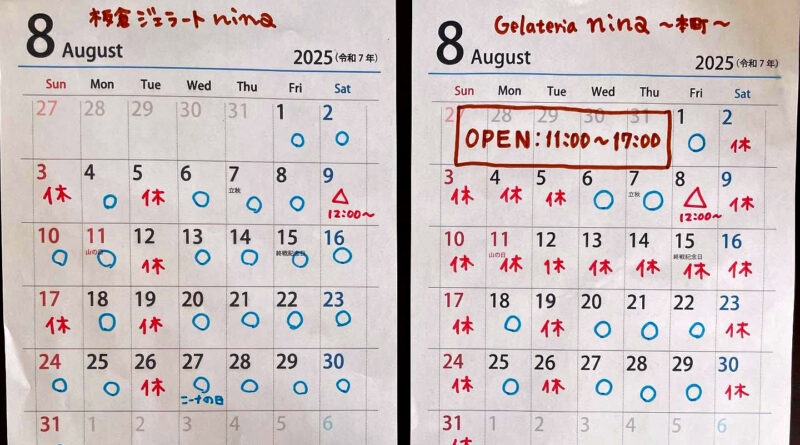 板倉ジェラート nina
8 August
2025(令和7年)
Sun Mon Tue Wed Thu Fri Sat
27 28 29 30 31 1 2
3 4 5 6 7 8 9
立秋
休 休
12:00~
10 11 12 13 14 15 16
山の日 終戦記念日
休
17 18 19 20 21 22 23
休 休
24 25 26 27 28 29 30
休
ニーナの日
31 1 2 3 4 5 6
Gelateria nina ~本町~
8 August
2025(令和7年)
Sun Mon Tue Wed Thu Fri Sat
27 28 29 30 31 1 2
OPEN:11:00~17:00
休
3 4 5 6 7 8 9
立秋
休 休 休 休
12:00~
10 11 12 13 14 15 16
山の日 終戦記念日
休 休 休 休 休 休 休
17 18 19 20 21 22 23
休 休 休
24 25 26 27 28 29 30
休 休 休
31 1 2 3 4 5 6
休